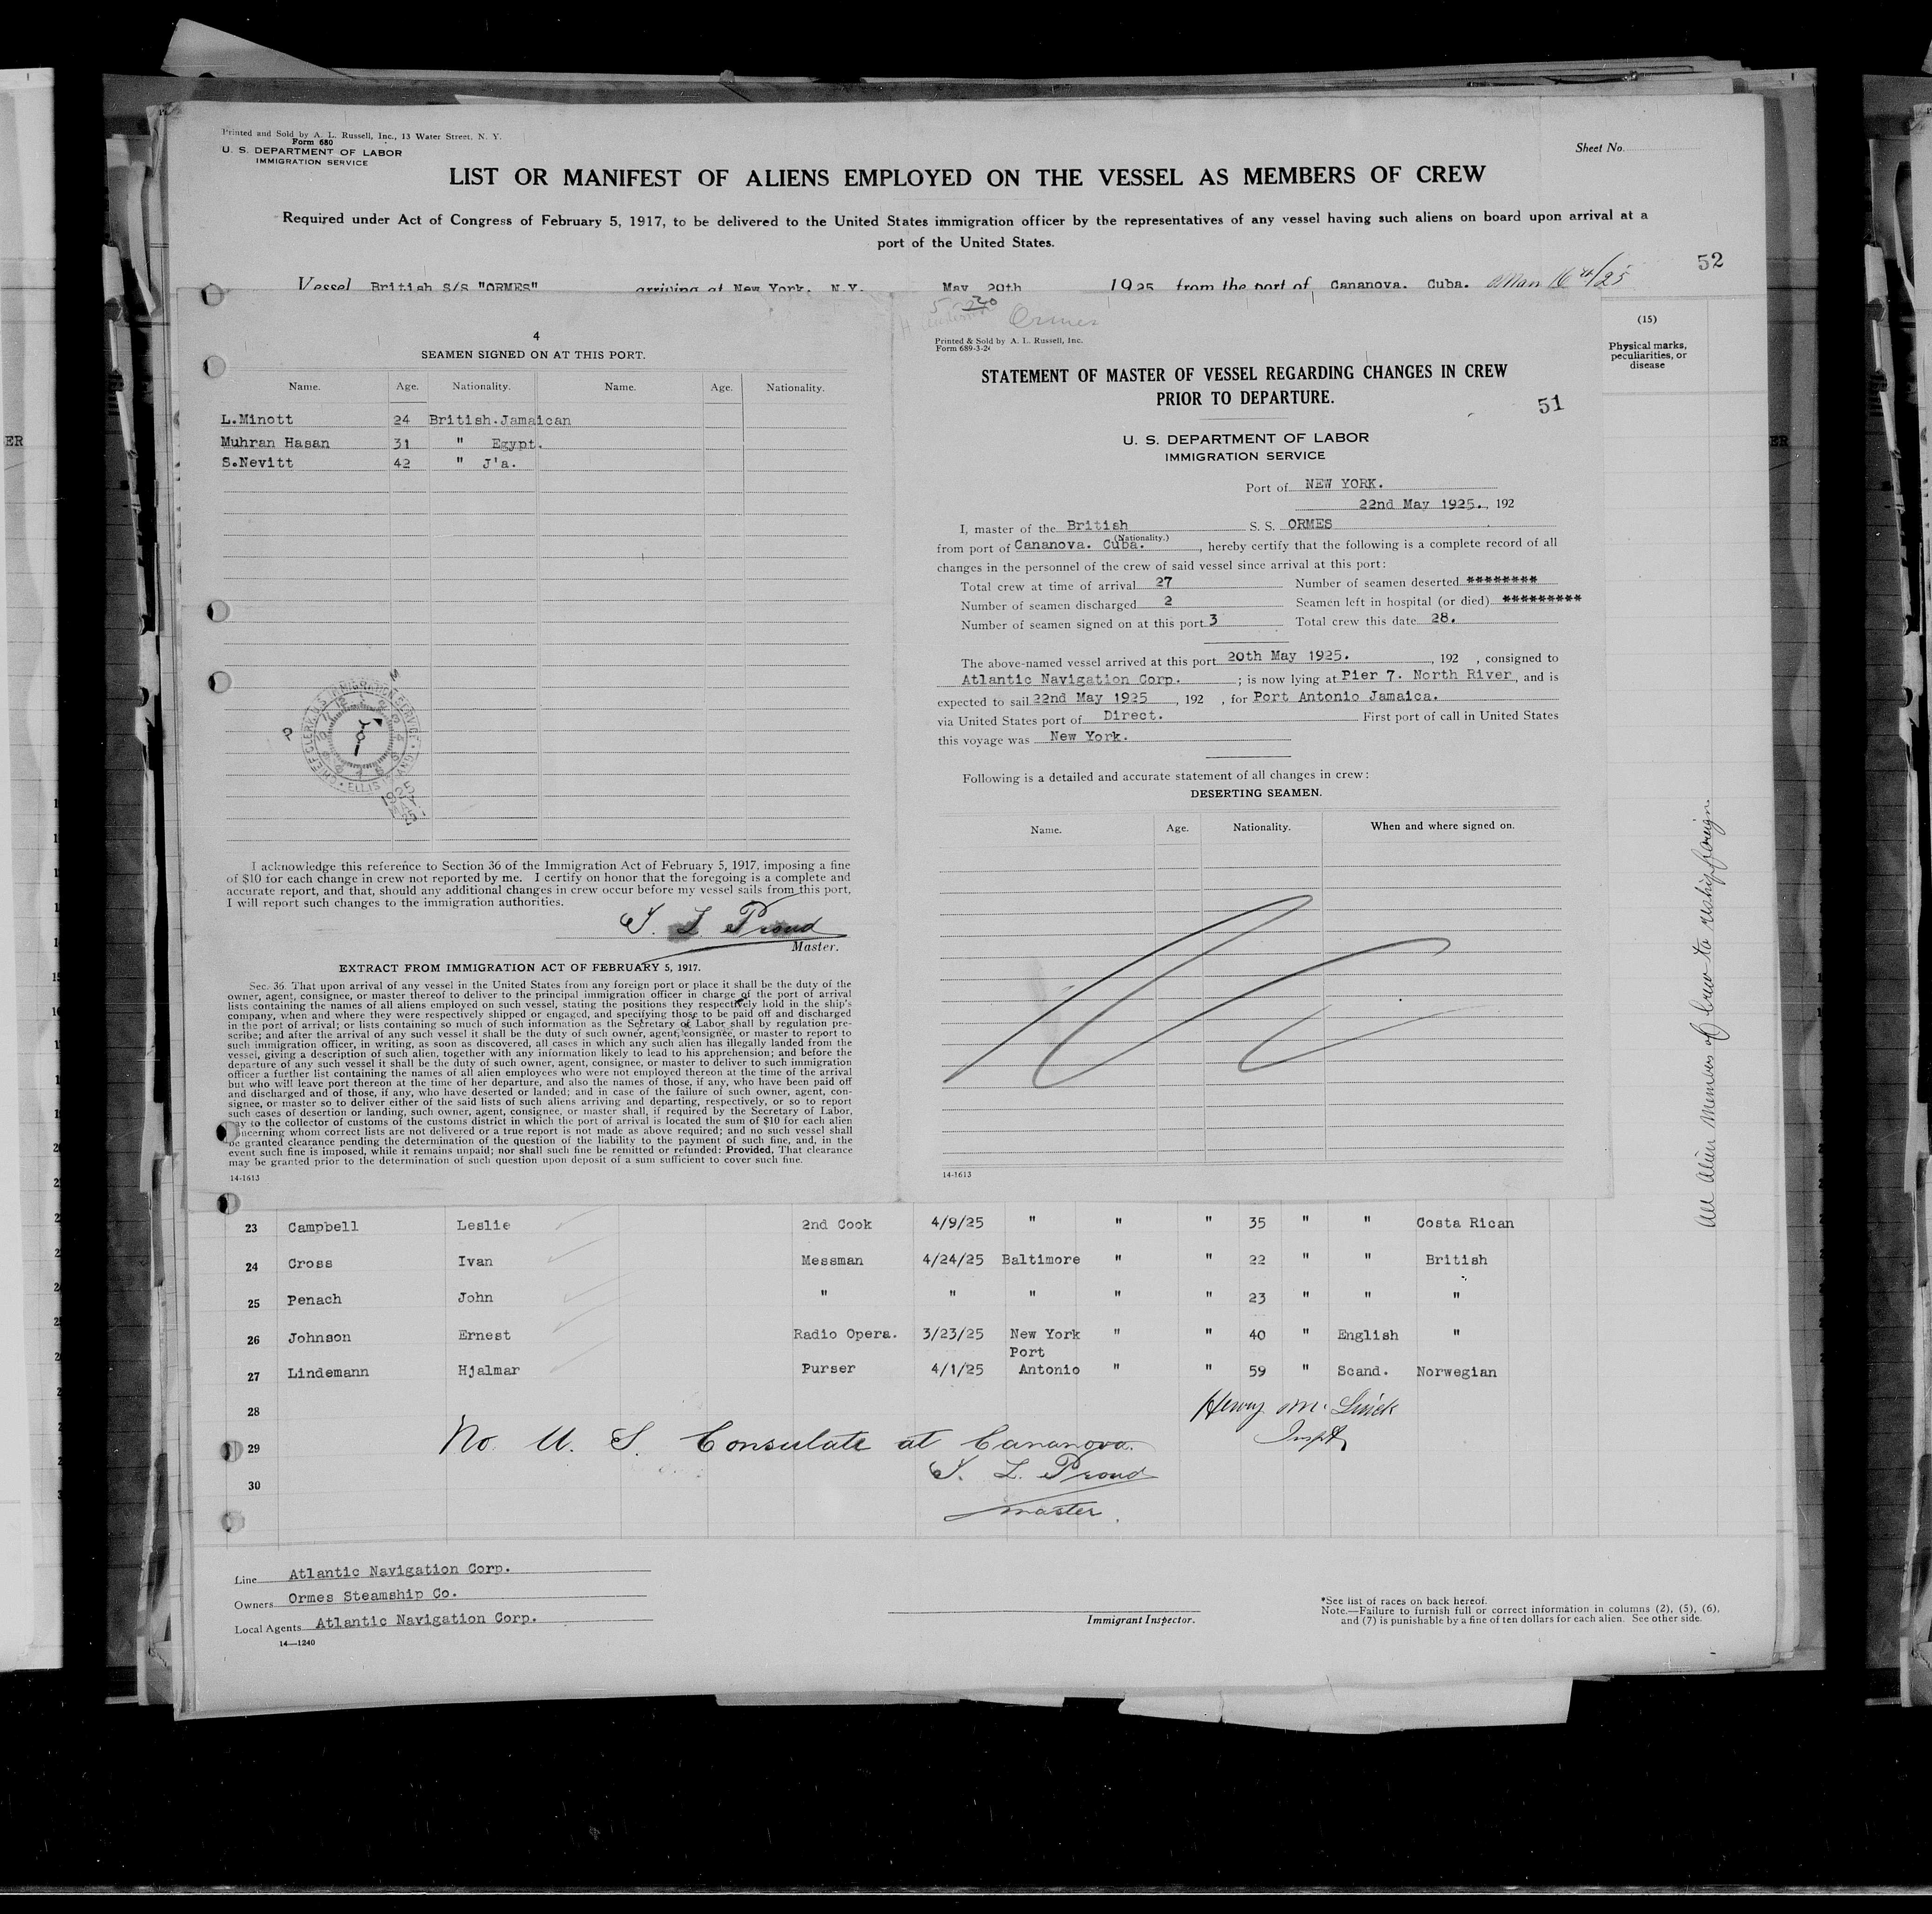 Printed and Sold by A. L. Russell, Inc., 13 Water Street, N. Y.
Form 680
U. S. DEPARTMENT OF LABOR
IMMIGRATION SERVICE
Sheet No.
LIST OR MANIFEST OF ALIENS EMPLOYED ON THE VESSEL AS MEMBERS OF CREW
Required under Act of Congress of February 5, 1917, to be delivered to the United States immigration officer by the representatives of any vessel having such aliens on board upon arrival at a
port of the United States.
52
Vessel British S/S "ORMES" arriving at New York. N.Y. May 20th 1925 from the port of Cananova. Cuba.
4
SEAMEN SIGNED ON AT THIS PORT.
Name. Age. Nationality. Name. Age. Nationality.
L.Minott 24 British.Jamaican
Muhran Hasan 31 " Egypt.
S.Nevitt 42 " J'a.
I acknowledge this reference to Section 36 of the Immigration Act of February 5, 1917, imposing a fine
of $10 for each change in crew not reported by me. I certify on honor that the foregoing is a complete and
accurate report, and that, should any additional changes in crew occur before my vessel sails from this port,
I will report such changes to the immigration authorities.
L Proud
Master.
EXTRACT FROM IMMIGRATION ACT OF FEBRUARY 5, 1917.
Sec. 36. That upon arrival of any vessel in the United States from any foreign port or place it shall be the duty of the
owner, agent, consignee, or master thereof to deliver to the principal immigration officer in charge of the port of arrival
lists containing the names of all aliens employed on such vessel, stating the positions they respectively hold in the ship's
company, when and where they were respectively shipped or engaged, and specifying those to be paid off and discharged
in the port of arrival; or lists containing so much of such information as the Secretary of Labor shall by regulation pre-
scribe; and after the arrival of any such vessel it shall be the duty of such owner, agent, consignee, or master to report to
such immigration officer, in writing, as soon as discovered, all cases in which any such alien has illegally landed from the
vessel, giving a description of such alien, together with any information likely to lead to his apprehension; and before the
departure of any such vessel it shall be the duty of such owner, agent, consignee, or master to deliver to such immigration
officer a further list containing the names of all alien employees who were not employed thereon at the time of the arrival
but who will leave port thereon at the time of her departure, and also the names of those, if any, who have been paid off
and discharged and of those, if any, who have deserted or landed; and in case of the failure of such owner, agent, con-
signee, or master so to deliver either of the said lists of such aliens arriving and departing, respectively, or so to report
such cases of desertion or landing, such owner, agent, consignee, or master shall, if required by the Secretary of Labor,
pay to the collector of customs of the customs district in which the port of arrival is located the sum of $10 for each alien
concerning whom correct lists are not delivered or a true report is not made as above required; and no such vessel shall
be granted clearance pending the determination of the question of the liability to the payment of such fine, and, in the
event such fine is imposed, while it remains unpaid; nor shall such fine be remitted or refunded: Provided, That clearance
may be granted prior to the determination of such question upon deposit of a sum sufficient to cover such fine.
14-1613
Ormes
Printed & Sold by A. L. Russell, Inc.
Form 689-3-24
STATEMENT OF MASTER OF VESSEL REGARDING CHANGES IN CREW
PRIOR TO DEPARTURE.
51
U. S. DEPARTMENT OF LABOR
IMMIGRATION SERVICE
Port of NEW YORK.
22nd May 1925., 192
I, master of the British S. S. ORMES
(Nationality.)
from port of Cananova. Cuba. , hereby certify that the following is a complete record of all
changes in the personnel of the crew of said vessel since arrival at this port:
Total crew at time of arrival 27 Number of seamen deserted ********
Number of seamen discharged 2 Seamen left in hospital (or died) *********
Number of seamen signed on at this port 3 Total crew this date 28.
The above-named vessel arrived at this port 20th May 1925. , 192 , consigned to
Atlantic Navigation Corp. ; is now lying at Pier 7. North River, and is
expected to sail 22nd May 1925 , 192 , for Port Antonio Jamaica.
via United States port of Direct. First port of call in United States
this voyage was New York.
Following is a detailed and accurate statement of all changes in crew:
DESERTING SEAMEN.
Name. Age. Nationality. When and where signed on.
14-1613
(15)
Physical marks,
peculiarities, or
disease
All Alien Members of Crew to reship foreign.
23 Campbell Leslie 2nd Cook 4/9/25 " " " 35 " " Costa Rican
24 Cross Ivan Messman 4/24/25 Baltimore " " 22 " " British
25 Penach John " " " " " 23 " " "
26 Johnson Ernest Radio Opera. 3/23/25 New York " " 40 " English "
27 Lindemann Hjalmar Purser 4/1/25 Port Antonio " " 59 " Scand. Norwegian
28
Henry M.
29 No. U. S. Consulate at Cananova.
L. Proud
30
master.
Line Atlantic Navigation Corp.
Owners Ormes Steamship Co.
Local Agents Atlantic Navigation Corp.
14—1240
Immigrant Inspector.
*See list of races on back hereof.
Note.—Failure to furnish full or correct information in columns (2), (5), (6),
and (7) is punishable by a fine of ten dollars for each alien. See other side.